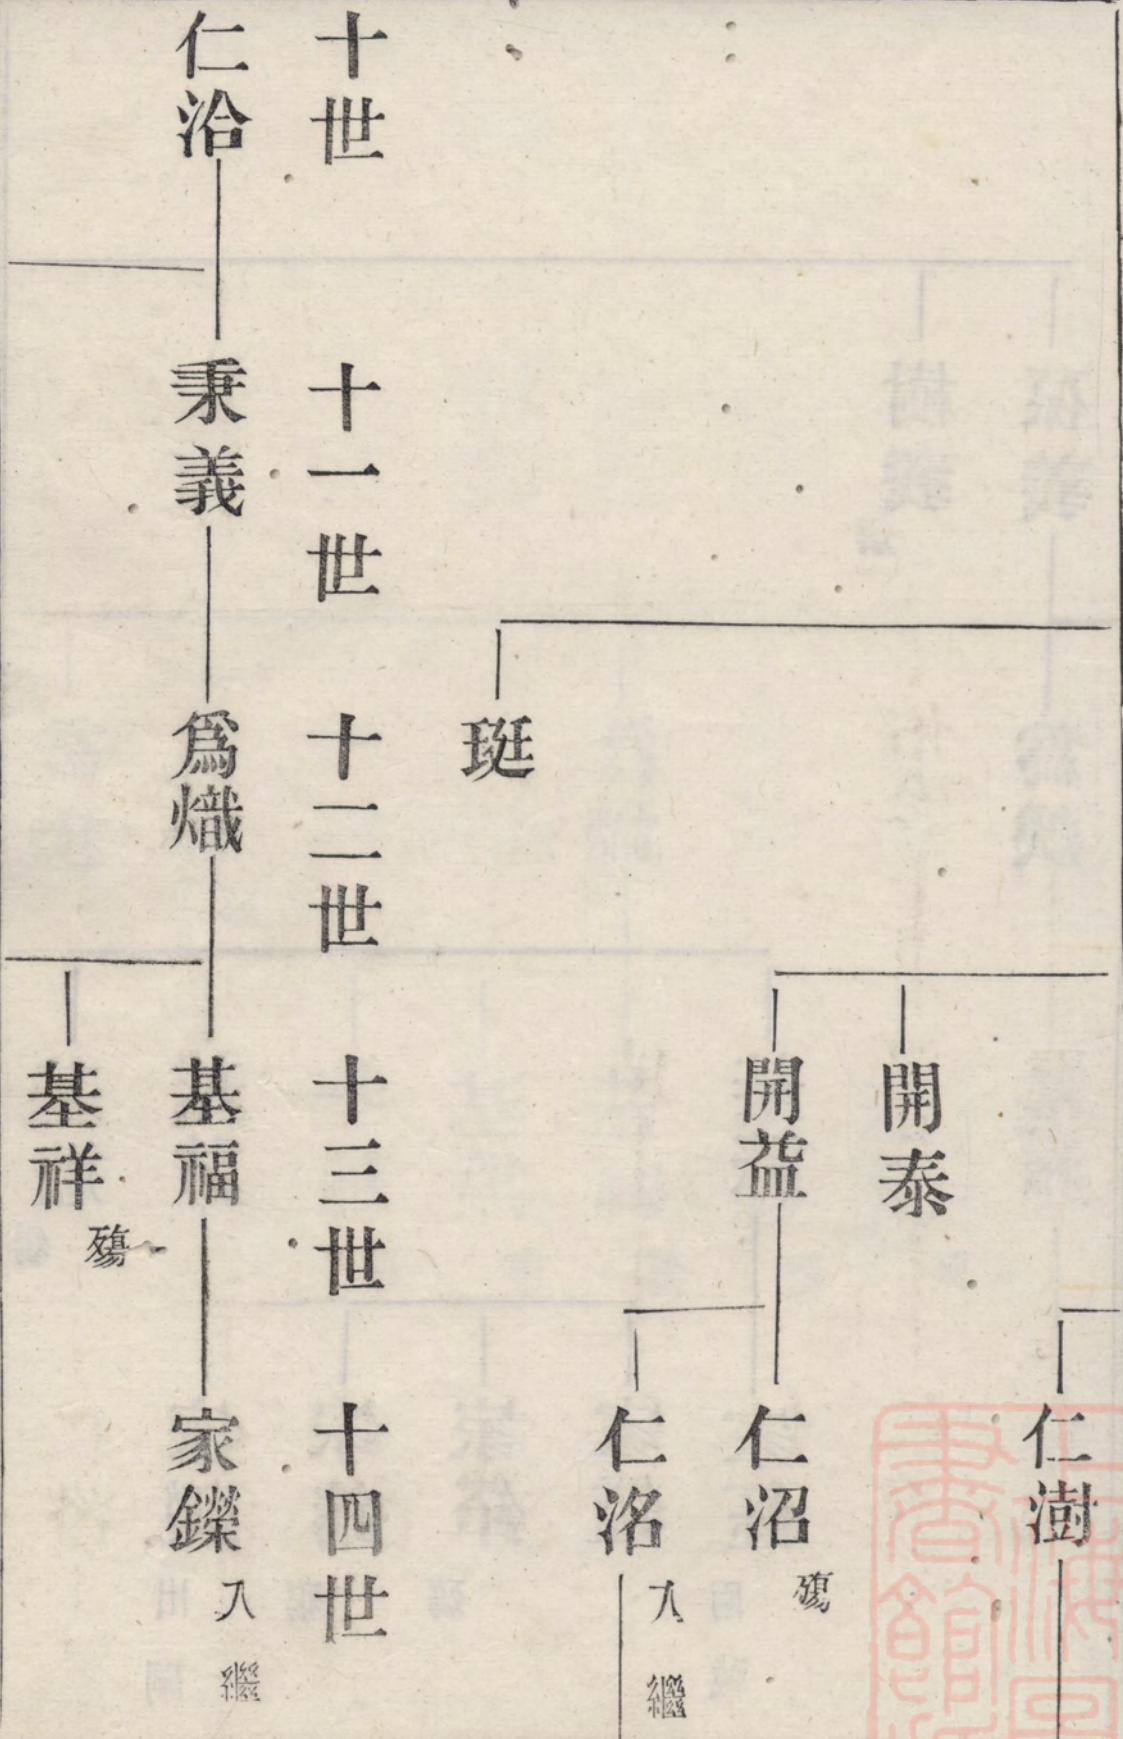 仁澍
開泰
開益
仁沼 殤
仁洺 入繼
珽
十世
十一世
十二世
十三世
十四世
仁洽
秉義
爲熾
基福
家鑠 入繼
基祥 殤